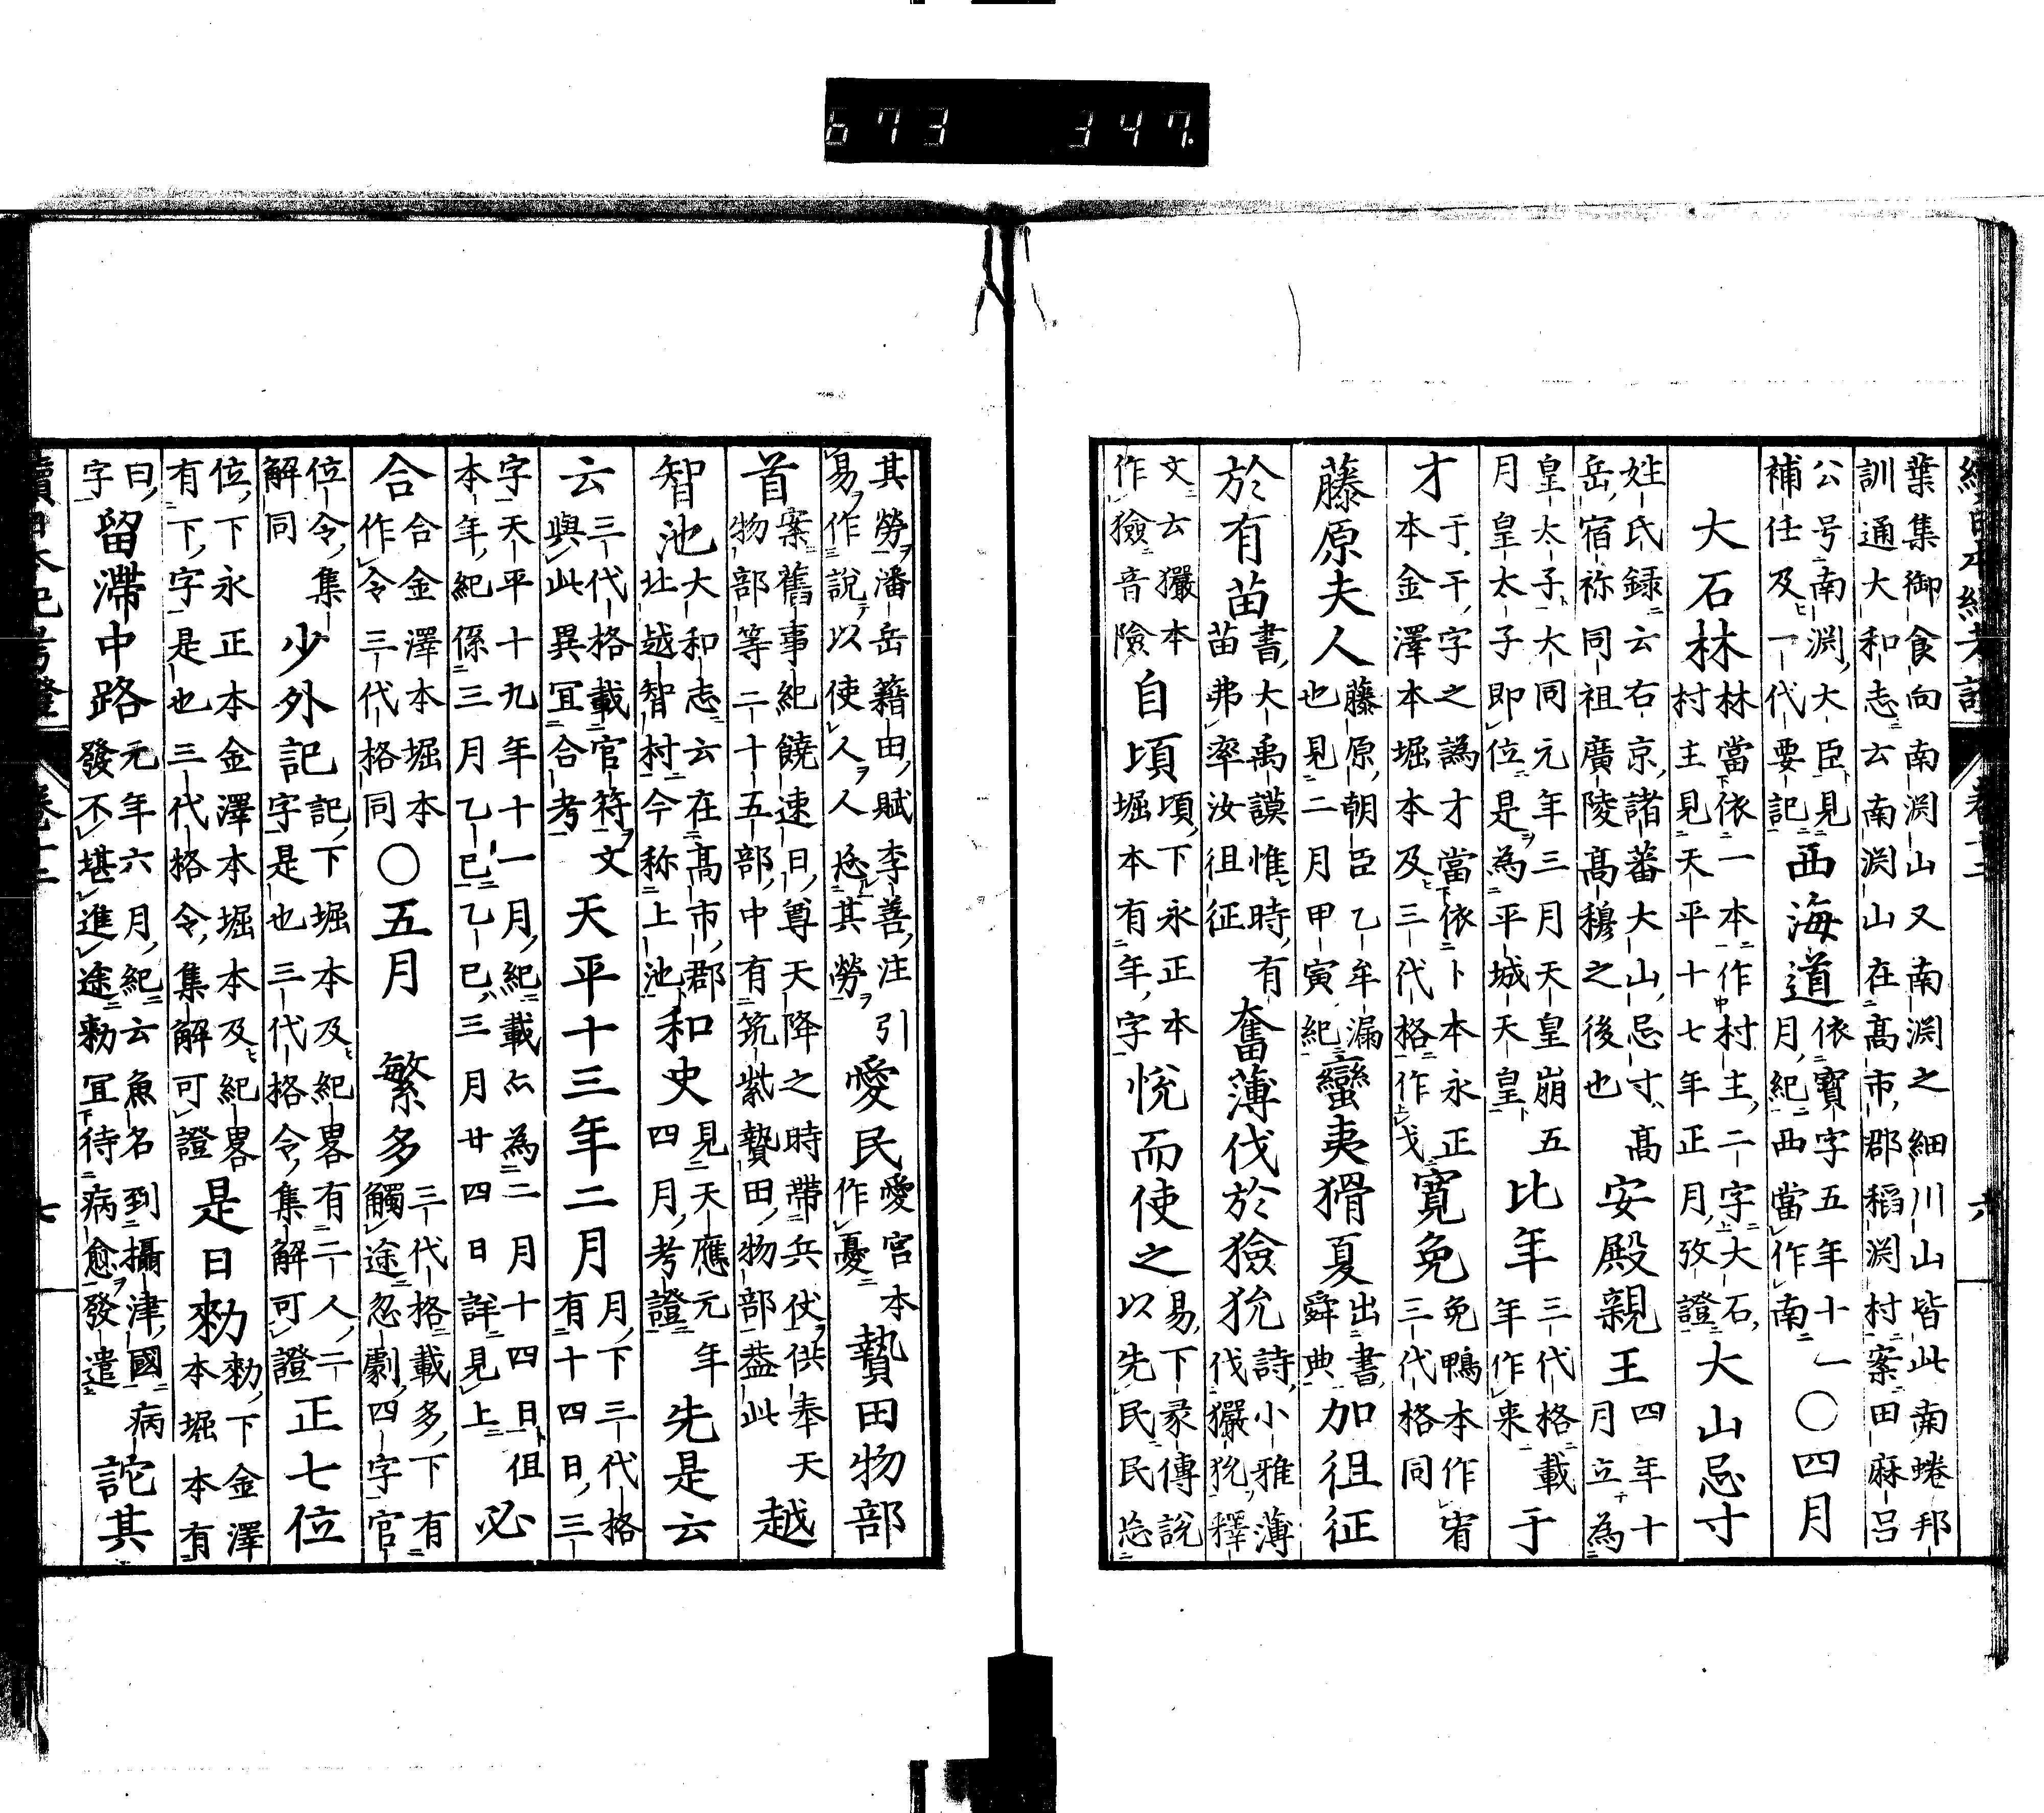 續日本紀考證 卷十二 六
葉集御食向南淵山又南淵之細川山皆此南蜷邦
訓通大和志云南淵山在高市郡稻淵村案田麻呂
公号南淵大臣見補任及一代要記西海道依寶字五年十一月紀西當作南○四月
大石林林當依一本作村主二字大石村主見天平十七年正月攷證大山忌寸
姓氏録云右京諸蕃大山忌寸高岳宿祢同祖廣陵高穆之後也安殿親王四年十月立為
皇太子大同元年三月天皇崩五月皇太子即位是為平城天皇比年三代格載年作来于
才于干字之譌才當依卜本永正本金澤本堀本及三代格作戈寛免免鴨本作宥三代格同
藤原夫人藤原朝臣乙牟漏也見二月甲寅紀蠻夷猾夏出書舜典加徂征
於有苗書大禹謨惟時有苗弗率汝徂征奮薄伐於獫狁詩小雅薄伐玁狁釋
文云玁本作獫音險自頃頃下永正本堀本有年字悦而使之易下彖傳説以先民民忘
其勞潘岳籍田賦李善注引易作説以使人人忘其勞愛民愛宮本作憂贄田物部
首案舊事紀饒速日尊天降之時帶兵伏供奉天物部等二十五部中有筑紫贄田物部盖此越
智池大和志云在高市郡北越智村今称上池和史見天應元年四月考證先是云
云三代格載官符文與此異冝合考天平十三年二月月下三代格有十四日三
字天平十九年十一月紀載亦為二月十四日但本年紀係三月乙巳乙巳三月廿四日詳見上必
合合金澤本堀本作令三代格同○五月繁多三代格載多下有觸途忽劇四字官
位令集解同少外記記下堀本及紀畧有二人二字是也三代格令集解可證正七位
位下永正本金澤本堀本及紀畧有下字是也三代格令集解可證是日勑勑下金澤本堀本有
曰字留滯中路元年六月紀云魚名到攝津國病發不堪進途勑冝待病愈發遣詑其
續日本紀考證 卷十二 七
673 347